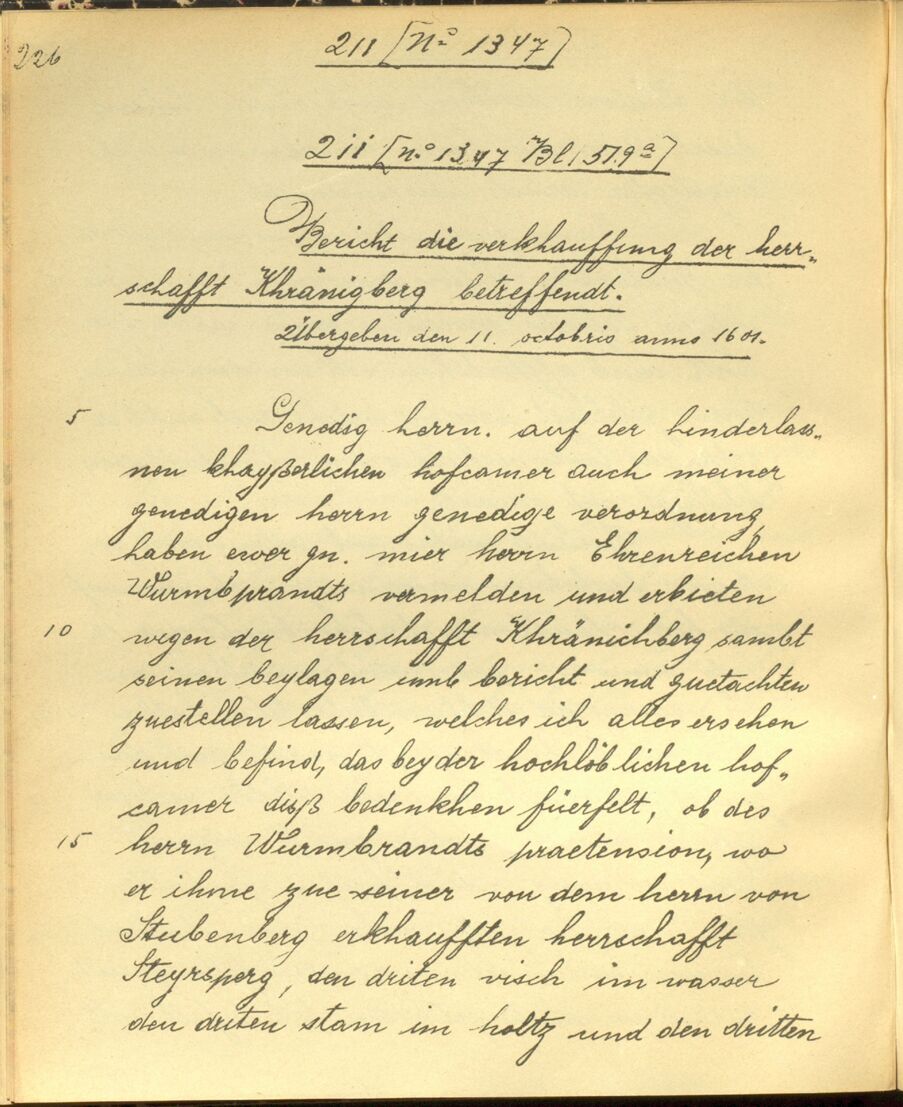 226
211 [No 1347]
211 [no 1347 Bl 519a]
Bericht die verkhauffung der herr„
schafft Khränigberg betreffendt.
Übergeben den 11. octobris anno 1601.
5 Genedig herrn. auf der hinderlass„
nen khayßerlichen hofcamer auch meiner
genedigen herrn genedige verordnung,
haben ewer gn. mier herrn Ehrenreichen
Wurmbprandts vermelden und erbieten
10 wegen der herrschafft Khränichberg sambt
seinen beylagen umb bericht und guetachten
zuestellen lassen, welches ich alles ersehen
und befind, das bey der hochlöblichen hof„
camer diß bedenkhen füerfelt, ob des
15 herrn Wurmbrandts praetension, wo
er ihme zue seiner von dem herrn von
Stubenberg erkhaufften herrschafft
Steyrsperg, den driten visch im wasser
den driten stam im holtz und den dritten